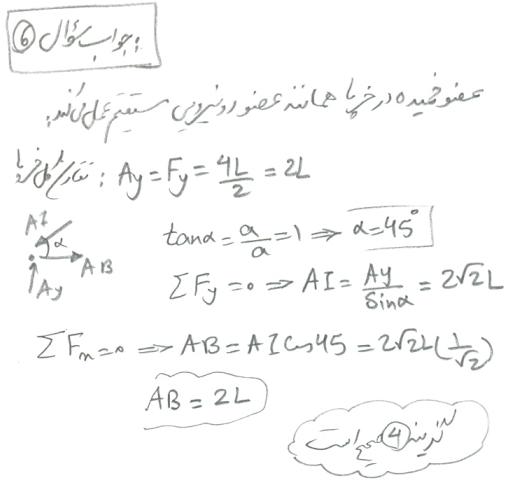 جواب سؤال ⑥:
عضو خمیده در خرپا همانند عضو دو نیرویی مستقیم عمل می‌کند:
تقارن کل خرپا: Ay = Fy = 4L/2 = 2L
AI
α
AB
Ay
tanα = a/a = 1 ⇒ α = 45°
ΣFy = 0 ⇒ AI = Ay/Sinα = 2√2L
ΣFx = 0 ⇒ AB = AI Cos45 = 2√2L(1/√2)
AB = 2L
گزینه ④ صحیح است